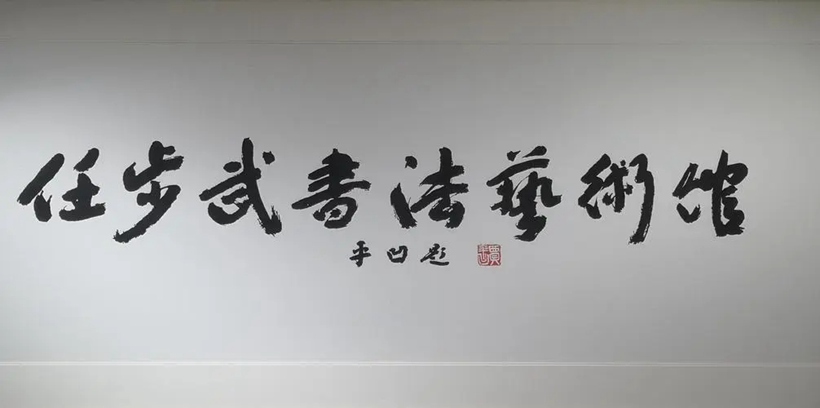 任步武書法藝術館
平凹题